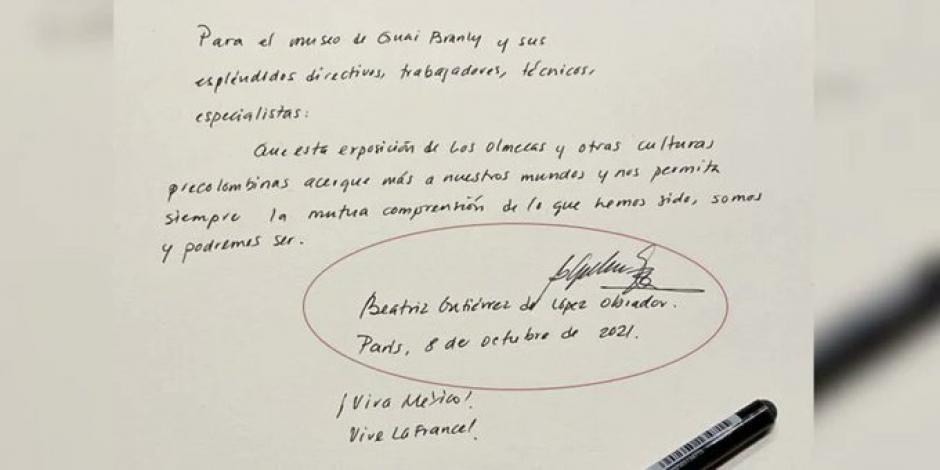 Para el museo de Guai Branly y sus
espléndidos directivos, trabajadores, técnicos,
especialistas:
Que esta exposición de los olmecas y otras culturas
precolombinas acerque más a nuestros mundos y nos permita
siempre la mutua comprensión de lo que hemos sido, somos
y podremos ser.
Beatriz Gutiérrez de López Obrador.
París, 8 de octubre de 2021.
¡Viva México!
Vive La France!